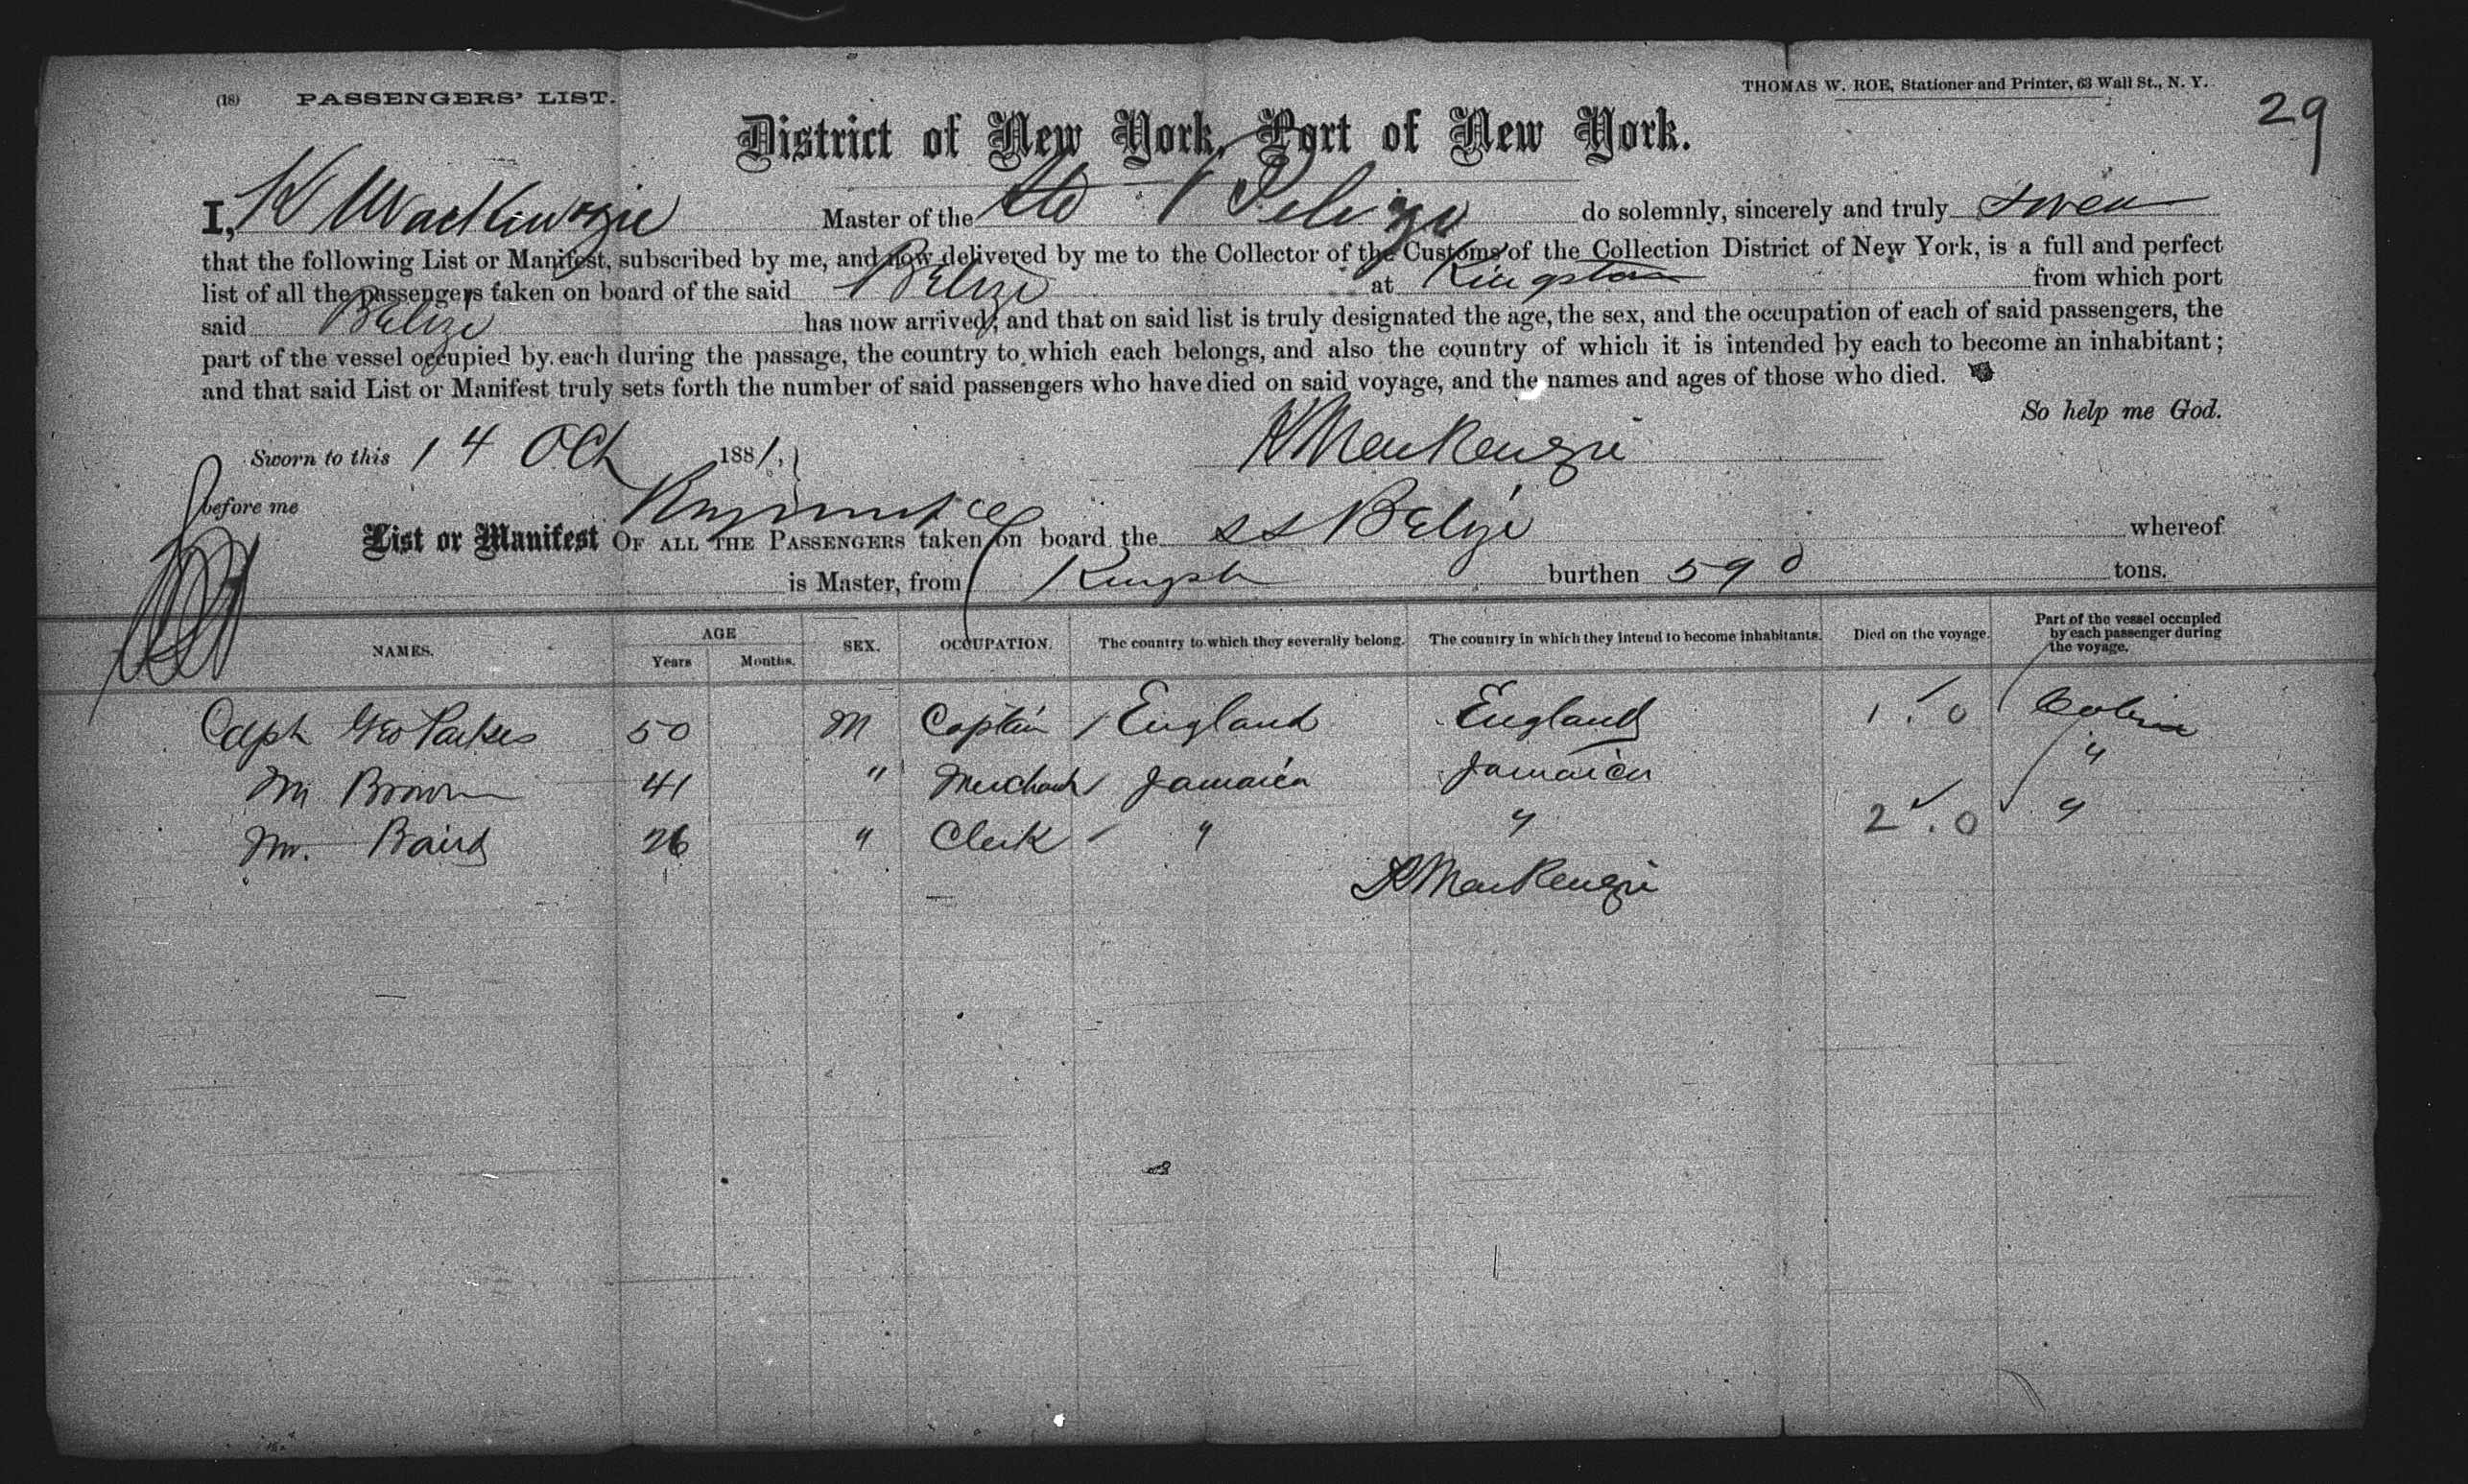 (18) PASSENGERS' LIST.
THOMAS W. ROE, Stationer and Printer, 63 Wall St., N. Y.
29
District of New York, Port of New York.
I, K MacKenzie Master of the Str Belize do solemnly, sincerely and truly Swear
that the following List or Manifest, subscribed by me, and now delivered by me to the Collector of the Customs of the Collection District of New York, is a full and perfect
list of all the passengers taken on board of the said Belize at Kingston from which port
said Belize has now arrived; and that on said list is truly designated the age, the sex, and the occupation of each of said passengers, the
part of the vessel occupied by each during the passage, the country to which each belongs, and also the country of which it is intended by each to become an inhabitant;
and that said List or Manifest truly sets forth the number of said passengers who have died on said voyage, and the names and ages of those who died.
So help me God.
Sworn to this 14 Oct 1881, K MacKenzie
before me
List or Manifest OF ALL THE PASSENGERS taken on board the SS Belize whereof
is Master, from Kingston burthen 590 tons.
NAMES. AGE Years Months. SEX. OCCUPATION. The country to which they severally belong. The country in which they intend to become inhabitants. Died on the voyage. Part of the vessel occupied by each passenger during the voyage.
Capt Geo Parkes 50 M Captain England England 1.0 Cabin
Mr Brown 41 " Merchant Jamaica Jamaica "
Mr. Baird 26 " Clerk " " 2.0 "
K MacKenzie